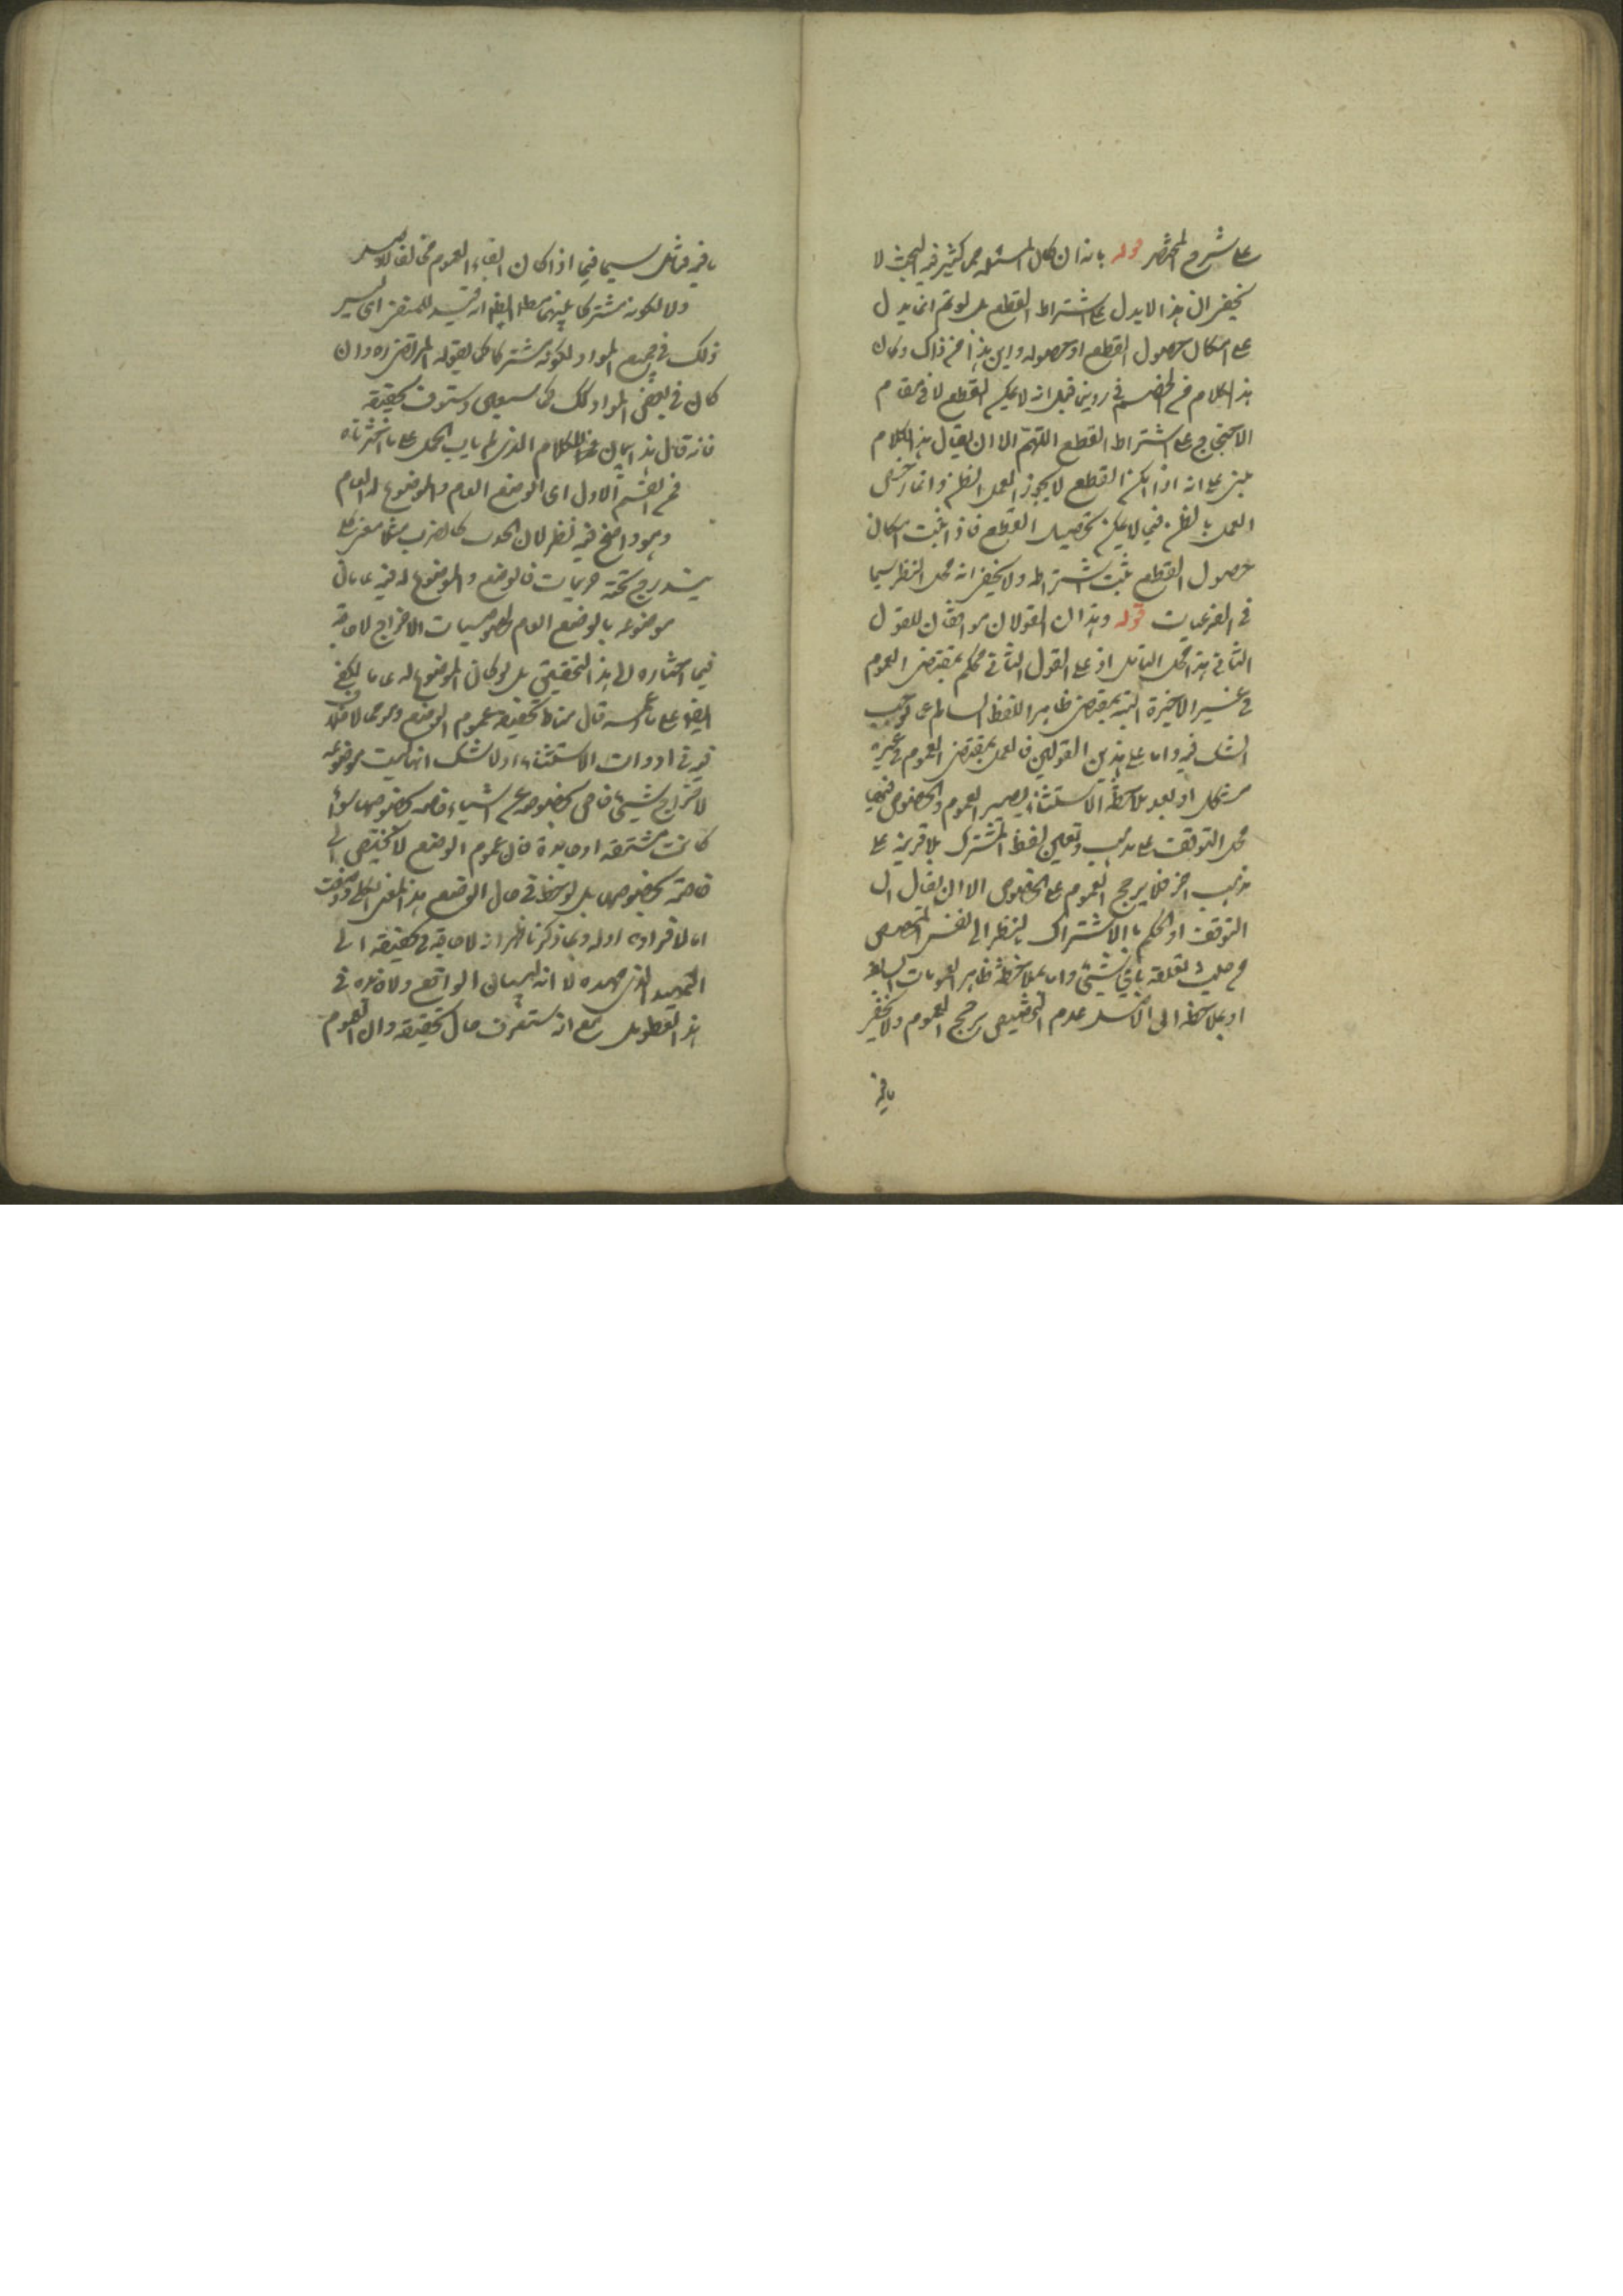 على شرح المختصر قوله بانه ان كان المسئلة مما كثر فيه البحث لا
يخفى ان هذا لا يدل على اشتراط القطع بل لو تم انما يدل
على امكان حصول القطع او حصوله واين هذا من ذاك وكان
هذا الكلام من الخصم في رد من قبل انه لا يمكن القطع لا في مقام
الاحتجاج على اشتراط القطع اللهم الا ان يقال هذا الكلام
مبنى على انه اذا امكن القطع لا يجوز العمل بالظن وانما رخص
العمل بالظن فيما لا يمكن تحصيل القطع فاذا ثبت امكان
حصول القطع ثبت اشتراطه ولا يخفى انه محل النظر سيما
في الفرعيات قوله وهذان القولان موافقان للقول
الثاني هذا محل التامل اذ على القول الثاني يحكم بمقتضى العموم
في غير الاخيرة البتة بمقتضى ظاهر اللفظ السالم عن
الشك فيه واما على هذين القولين فالعمل بمقتضى العموم في غيره
مشكل اذ بعد ملاحظة الاستثناء يصير العموم والخصوص فيها
محل التوقف على مذهب وتعيين لفظ المشترك بلا قرينة على
مذهب اخر فلا يرجح العموم على الخصوص الا ان يقال ان
التوقف او الحكم بالاشتراك بالنظر الى نفس المخصص
من حيث تعلقه باي شيئ واما بملاحظة ظاهر العمومات السابقة
او بملاحظة الى الاصل عدم التخصيص يرجح العموم ولا يخفى
ما فيه
ما فيه فتامل سيما فيما اذا كان القاء العموم مخالفا للاصل
ولا لكونه مشتركا بينهما مطلقا الظاهر انه قيد للمنفى اى ليس
ذلك في جميع المواد لكونه مشتركا كما يقوله المرتضى ره وان
كان في بعض المواد كذلك كما سيجئ وستعرف تحقيقه
فانه قال هذا بيان الكلام الذى لم يات الحمل على ما اخترناه
من القسم الاول اى الوضع العام والموضوع له العام
وهو واضح فيه نظر لان الحدث كالضرب مثلا معنى كلى
يندرج تحته جزئيات فالوضع والموضوع له فيه عامان
موضوعه بالوضع العام لخصوصيات الاخراج لا حاجة
فيما اختاره الى هذا التحقيق بل لو كان الموضوع له عاما لكفى
ايضا على ما قال مناط تحقيقه عموم الوضع وهو مما لا خلاف
فيه في ادوات الاستثناء اذ لا شك انها ليست موضوعه
لاخراج شيئ خاص بخصوصه عن اشياء خاصة بخصوصها سواء
كانت مشتقة او جامدة فان عموم الوضع لا يختص الى
خاصة بخصوصها بل لوحظ في حال الوضع هذا المعنى الكلي ووضعت
اما لافراده او له وبما ذكرنا ظهر انه لا حاجة في تحقيقه الى
التمهيد الذى مهده لا انه لبيان الواقع ولا فائدة في
هذا التطويل مع انه ستعرف حال تحقيقه وان العموم